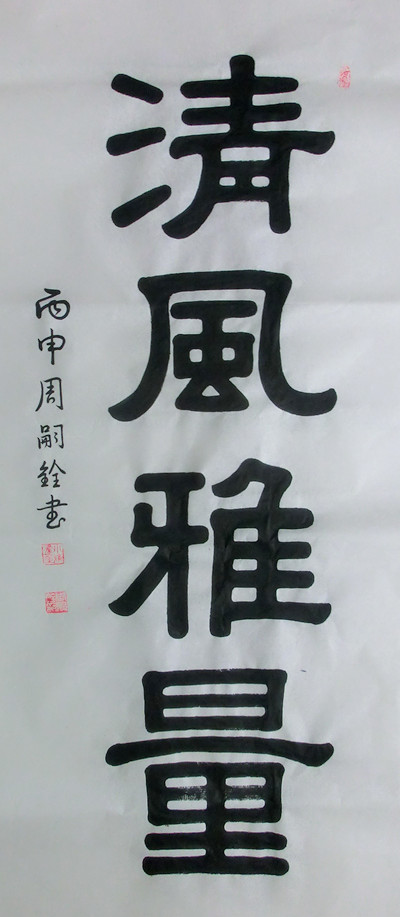 清風雅量
丙申周嗣銓书